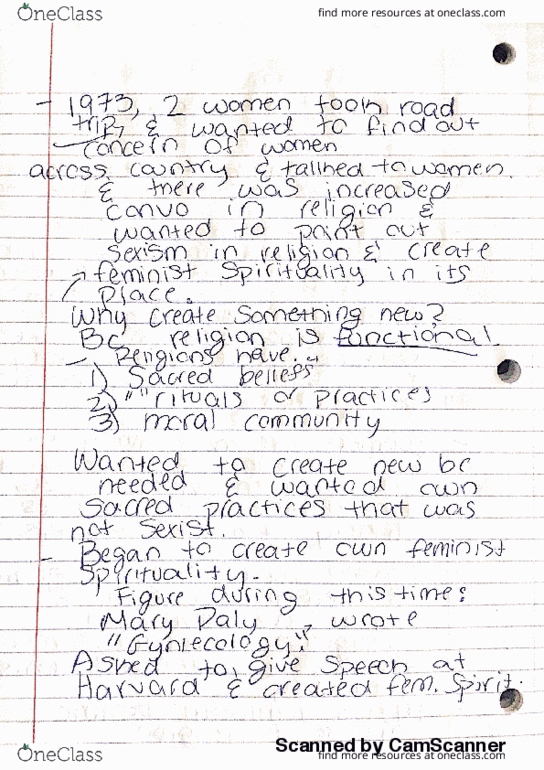 OneClass
find more resources at oneclass.com
- 1973, 2 women took road
trip, & wanted to find out
concern of women
across country & talked to women.
& there was increased
convo in religion &
wanted to point out
sexism in religion & create
feminist spirituality in its
place.
Why create something new?
Bc religion is functional
- Religions have..
1) Sacred beliefs
2) "" rituals or practices
3) moral community
Wanted to create new bc
needed & wanted own
sacred practices that was
not sexist.
- Began to create own feminist
spirituality.
Figure during this time:
Mary Daly, wrote
"Gyniecology."
Asked to give speech at
Harvard & created fem. spirit.
Scanned by CamScanner
OneClass
find more resources at oneclass.com